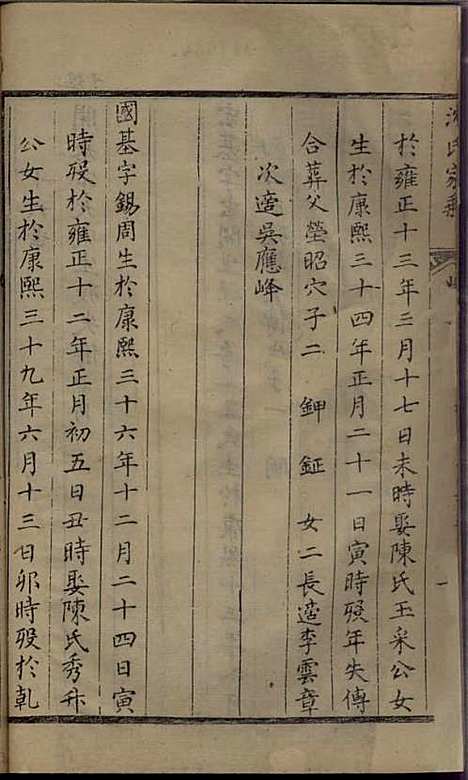 氏家乘
於雍正十三年三月十七日未時娶陳氏玉采公女
生於康熙三十四年正月二十一日寅時歿年失傳
合葬父塋昭穴子二　鉀　鉦　女二長適李雲章
次適吳應峰
國基字錫周生於康熙三十六年十二月二十四日寅
時歿於雍正十二年正月初五日丑時娶陳氏秀升
公女生於康熙三十九年六月十三日卯時歿於乹
一